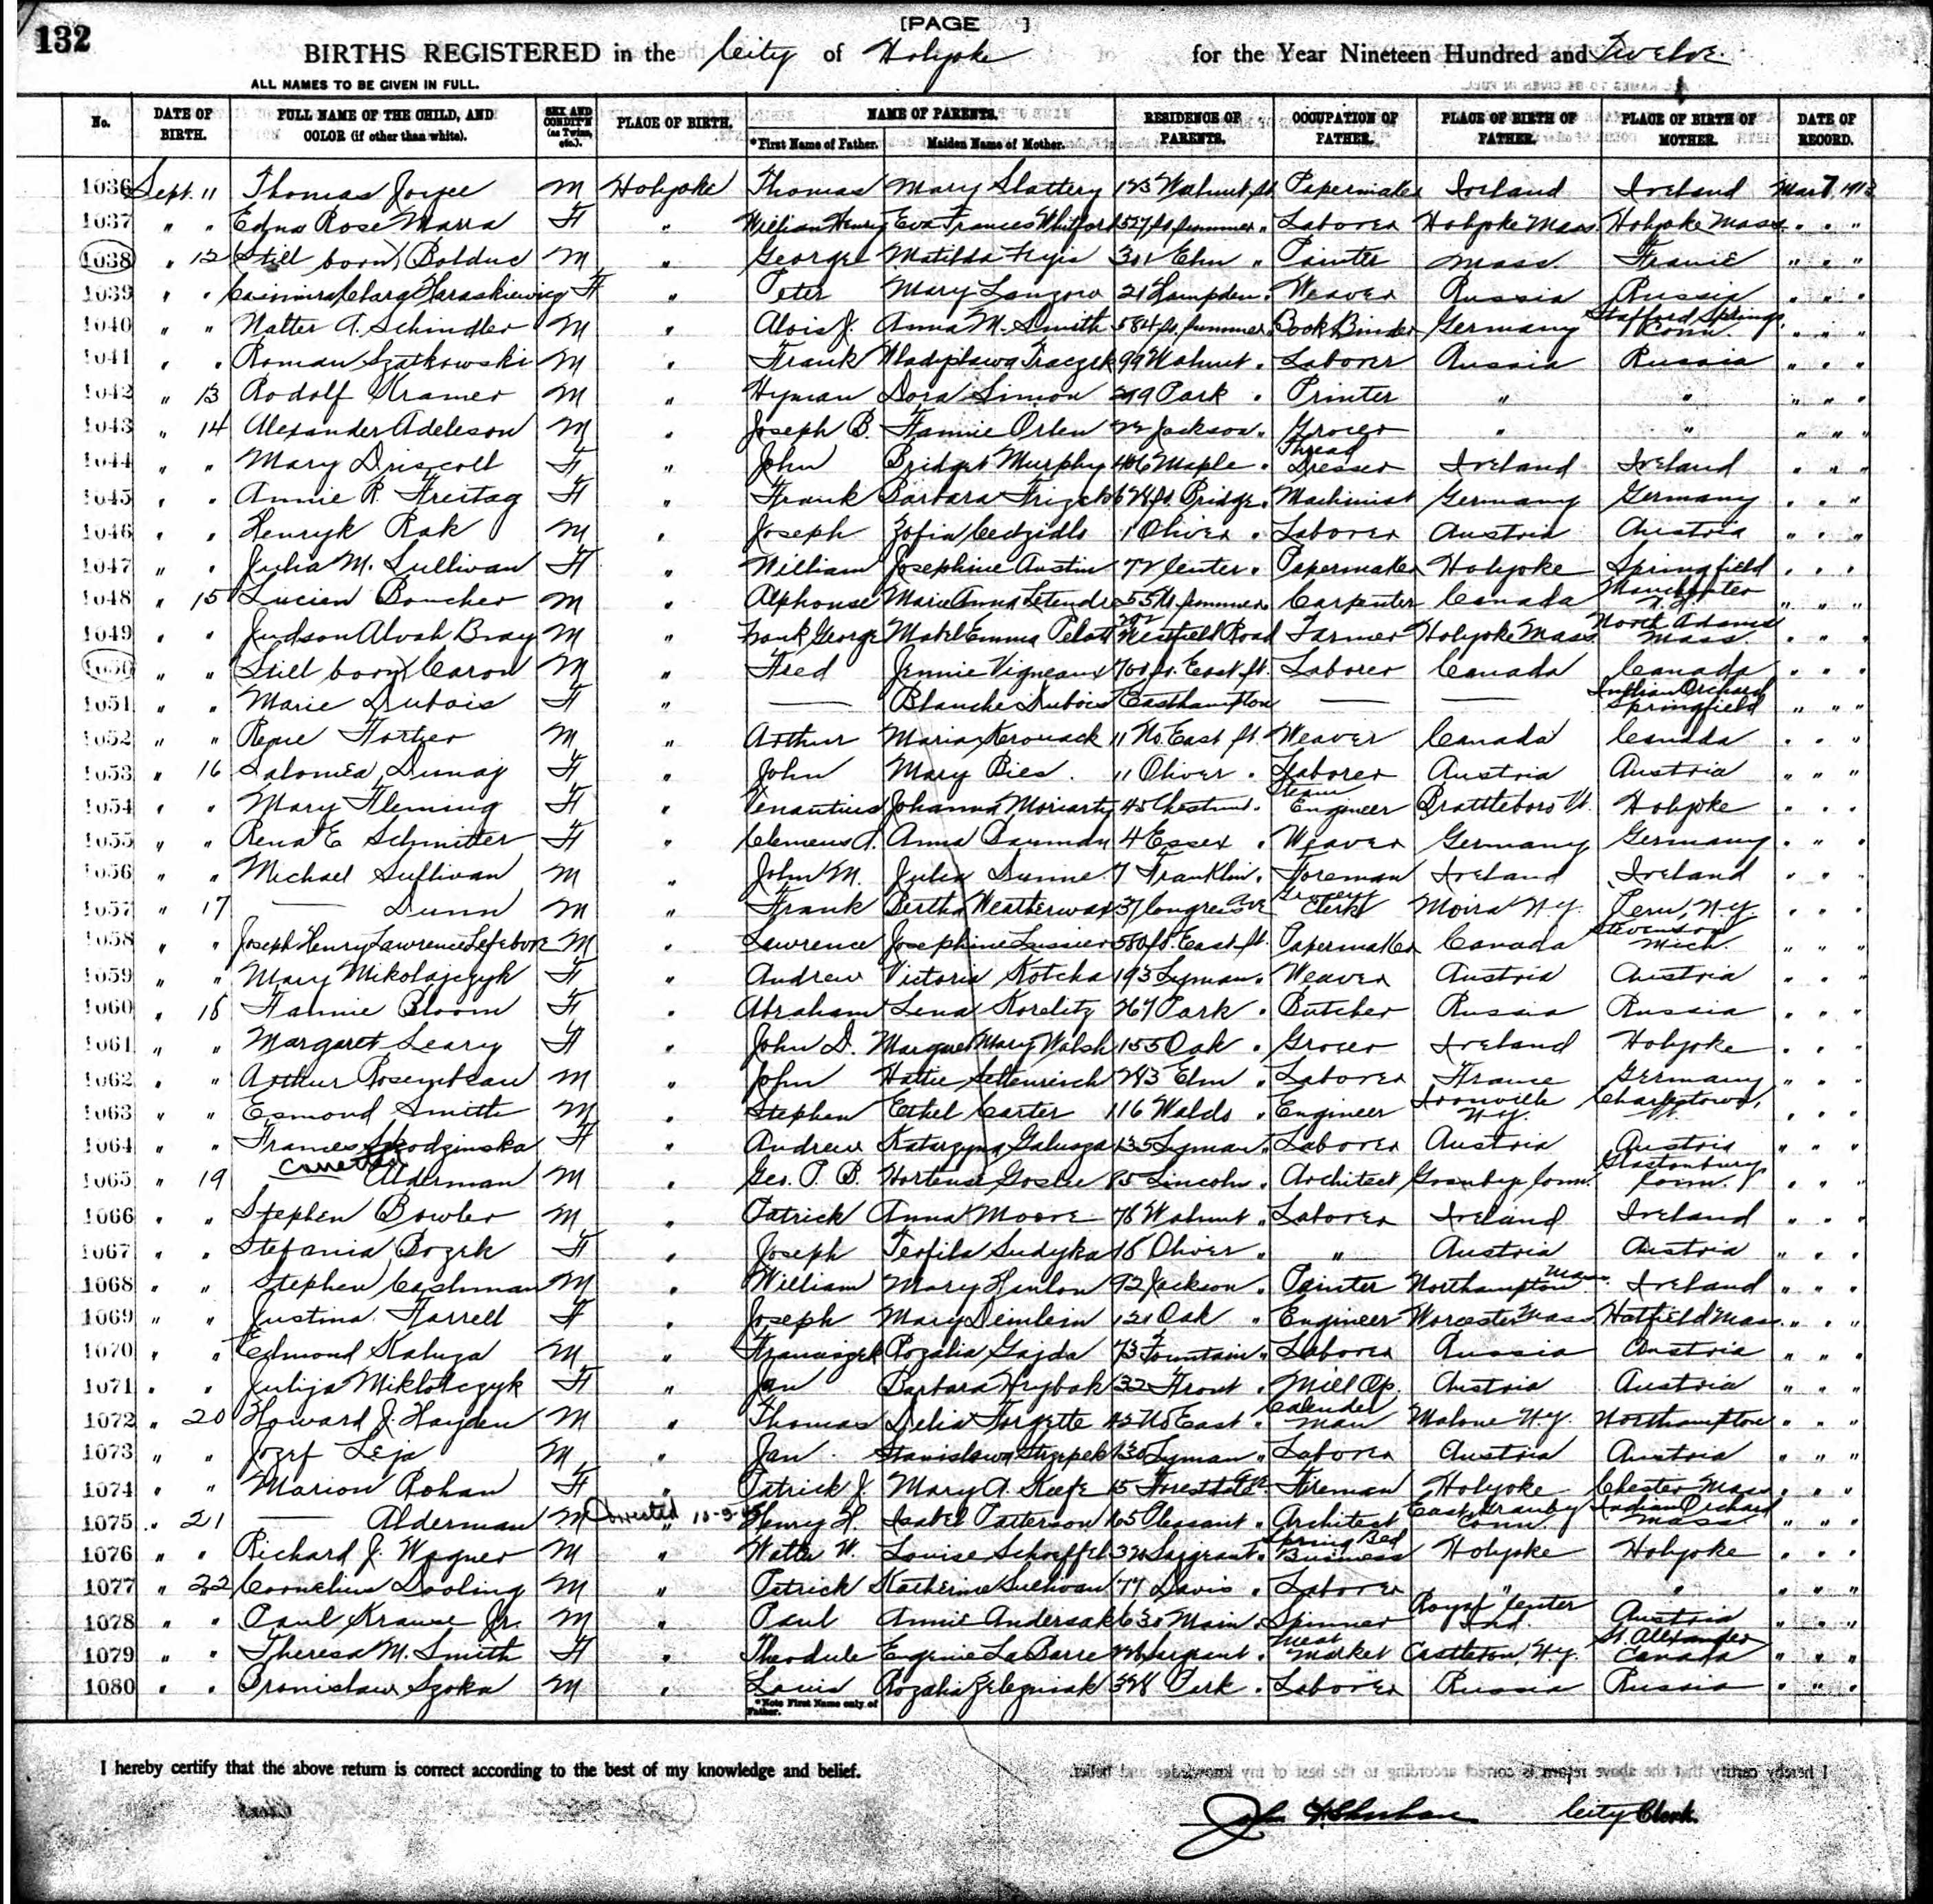 132
[PAGE ]
BIRTHS REGISTERED in the City of Holyoke for the Year Nineteen Hundred and Twelve.
ALL NAMES TO BE GIVEN IN FULL.
No. DATE OF BIRTH. FULL NAME OF THE CHILD, AND COLOR (if other than white). SEX AND CONDIT'N (as Twins, etc.). PLACE OF BIRTH. NAME OF PARENTS. *First Name of Father. Maiden Name of Mother. RESIDENCE OF PARENTS. OCCUPATION OF FATHER. PLACE OF BIRTH OF FATHER. PLACE OF BIRTH OF MOTHER. DATE OF RECORD.
1036 Sept. 11 Thomas Joyce M Holyoke Thomas Mary Slattery 123 Walnut St. Papermaker Ireland Ireland Mar 7 1913
1037 " " Edna Rose Marra F " William Henry Eva Frances Whitford 527 So. Summer " Laborer Holyoke Mass. Holyoke Mass. " " "
1038 " 12 (Still born) Bolduc M " George Matilda 301 Elm " Painter Mass. France " " "
1039 " " Casimira Clara Haraskiewicz F " Peter Mary 21 Hampden " Weaver Russia Russia " " "
1040 " " Walter A. Schindler M " Alois J. Anna M. Smith 584 So. Summer " Book Binder Germany Stafford Springs Conn. " " "
1041 " " Roman Szatkowski M " Frank Wladyslawa Traczek 99 Walnut " Laborer Russia Russia " " "
1042 " 13 Rodolf Kramer M " Hyman Dora Simon 299 Park " Printer " " " " "
1043 " 14 Alexander Adelson M " Joseph B. Fannie Orlen 22 Jackson " Grocer " " " " "
1044 " " Mary Driscoll F " John Bridget Murphy 406 Maple " Thread Dresser Ireland Ireland " " "
1045 " " Annie R. Freitag F " Frank Barbara 628 So. Bridge " Machinist Germany Germany " " "
1046 " " Henryk Rak M " Joseph Zofia Cedzidlo 1 Oliver " Laborer Austria Austria " " "
1047 " " Julia M. Sullivan F " William Josephine Austin 72 Center " Papermaker Holyoke Springfield " " "
1048 " 15 Lucien Boucher M " Alphonse Marie Anna Letendre 554 Summer " Carpenter Canada Manchester N.H. " " "
1049 " " Judson Alvah Bray M " Frank George Mabel Emma Pelott 202 Westfield Road Farmer Holyoke Mass. North Adams Mass. " " "
1050 " " (Still born) Caron M " Fred Jennie Vigneaux 700 So. East St. Laborer Canada Canada " " "
1051 " " Marie Dubois F " — Blanche Dubois Easthampton — — Indian Orchard Springfield " " "
1052 " " Rene Fortier M " Arthur Maria Kerouack 11 No. East St. Weaver Canada Canada " " "
1053 " 16 Salomea Dumaj F " John Mary Bies 11 Oliver " Laborer Austria Austria " " "
1054 " " Mary Fleming F " Venantius Johanna Moriarty 45 Chestnut " Steam Engineer Brattleboro Vt. Holyoke " " "
1055 " " Rena E Schmitter F " Clemens A. Anna Bauman 4 Essex " Weaver Germany Germany " " "
1056 " " Michael Sullivan M " John M. Julia Dunne 7 Franklin " Foreman Ireland Ireland " " "
1057 " 17 — Dunn M " Frank Bertha Weatherwax 37 Congress Ave Grocery Clerk Moira N.Y. Peru, N.Y. " " "
1058 " " Joseph Henry Lawrence Lefebvre M " Lawrence Josephine Lussier 580 So. East St. Papermaker Canada Stevenson Mich. " " "
1059 " " Mary Mikolajczyk F " Andrew Victoria Kotcha 193 Lyman " Weaver Austria Austria " " "
1060 " 18 Fannie Bloom F " Abraham Lena Korelitz 267 Park " Butcher Russia Russia " " "
1061 " " Margaret Leary F " John D. Margaret Mary Walsh 155 Oak " Grocer Ireland Holyoke " " "
1062 " " Arthur Rosembeau M " John Hattie 243 Elm " Laborer France Germany " " "
1063 " " Esmond Smith M " Stephen Ethel Carter 116 Waldo " Engineer Ironville N.Y. Charlestown, " " "
1064 " " Frances Skodzinska F " Andrew Katarzyna Galusza 135 Lyman " Laborer Austria Austria " " "
1065 " 19 Corrected Alderman M " Geo. P. B. Hortense Goslee 85 Lincoln " Architect Granby Conn. Glastonbury Conn. " " "
1066 " " Stephen Bowler M " Patrick Anna Moore 76 Walnut " Laborer Ireland Ireland " " "
1067 " " Stefania Bozek F " Joseph Teofila Sudyka 18 Oliver " " Austria Austria " " "
1068 " " Stephen Cashman M " William Mary Hanlon 92 Jackson " Painter Northampton Mass. Ireland " " "
1069 " " Justina Farrell F " Joseph Mary Deinlein 121 Oak " Engineer Worcester Mass Hatfield Mass. " " "
1070 " " Edmond Kaluza M " Franciszek Rozalia Gajda 73 Fountain " Laborer Russia Austria " " "
1071 " " Julija Miklotczyk F " Jan Barbara Hrybak 32 Front " Mill Op. Austria Austria " " "
1072 " 20 Howard J. Hayden M " Thomas Delia Forgette 42 No East " Calender Man Malone N.Y. Northampton " " "
1073 " " Jozef Leja M " Jan Stanislawa 130 Lyman " Laborer Austria Austria " " "
1074 " " Marion Rohan F " Patrick J. Mary A. Keefe 15 Forestdale Ave Fireman Holyoke Chester Mass. " " "
1075 " 21 — Alderman M Corrected " Henry H. Isabel Patterson 165 Pleasant " Architect East Granby Conn. Indian Orchard Mass. " " "
1076 " " Richard J. Wagner M " Walter W. Louise Schoeffel 320 Sargeant " Spring Bed Business Holyoke Holyoke " " "
1077 " 22 Cornelius Dooling M " Patrick Katherine Sullivan 77 Davis " Laborer " " " " "
1078 " " Paul Krause Jr. M " Paul Annie Andersak 630 Main " Spinner Royal Center Ind. Austria " " "
1079 " " Theresa M. Smith F " Theodule Eugenie LaBarre 226 Sargeant " Meat Market Castleton, N.Y. St. Alexander Canada " " "
1080 " " Bronislaw Szoka M " Louis Rozalia Zelezniak 328 Park " Laborer Russia Russia " " "
*Note First Name only of Father.
I hereby certify that the above return is correct according to the best of my knowledge and belief.
John F. Sheehan City Clerk.